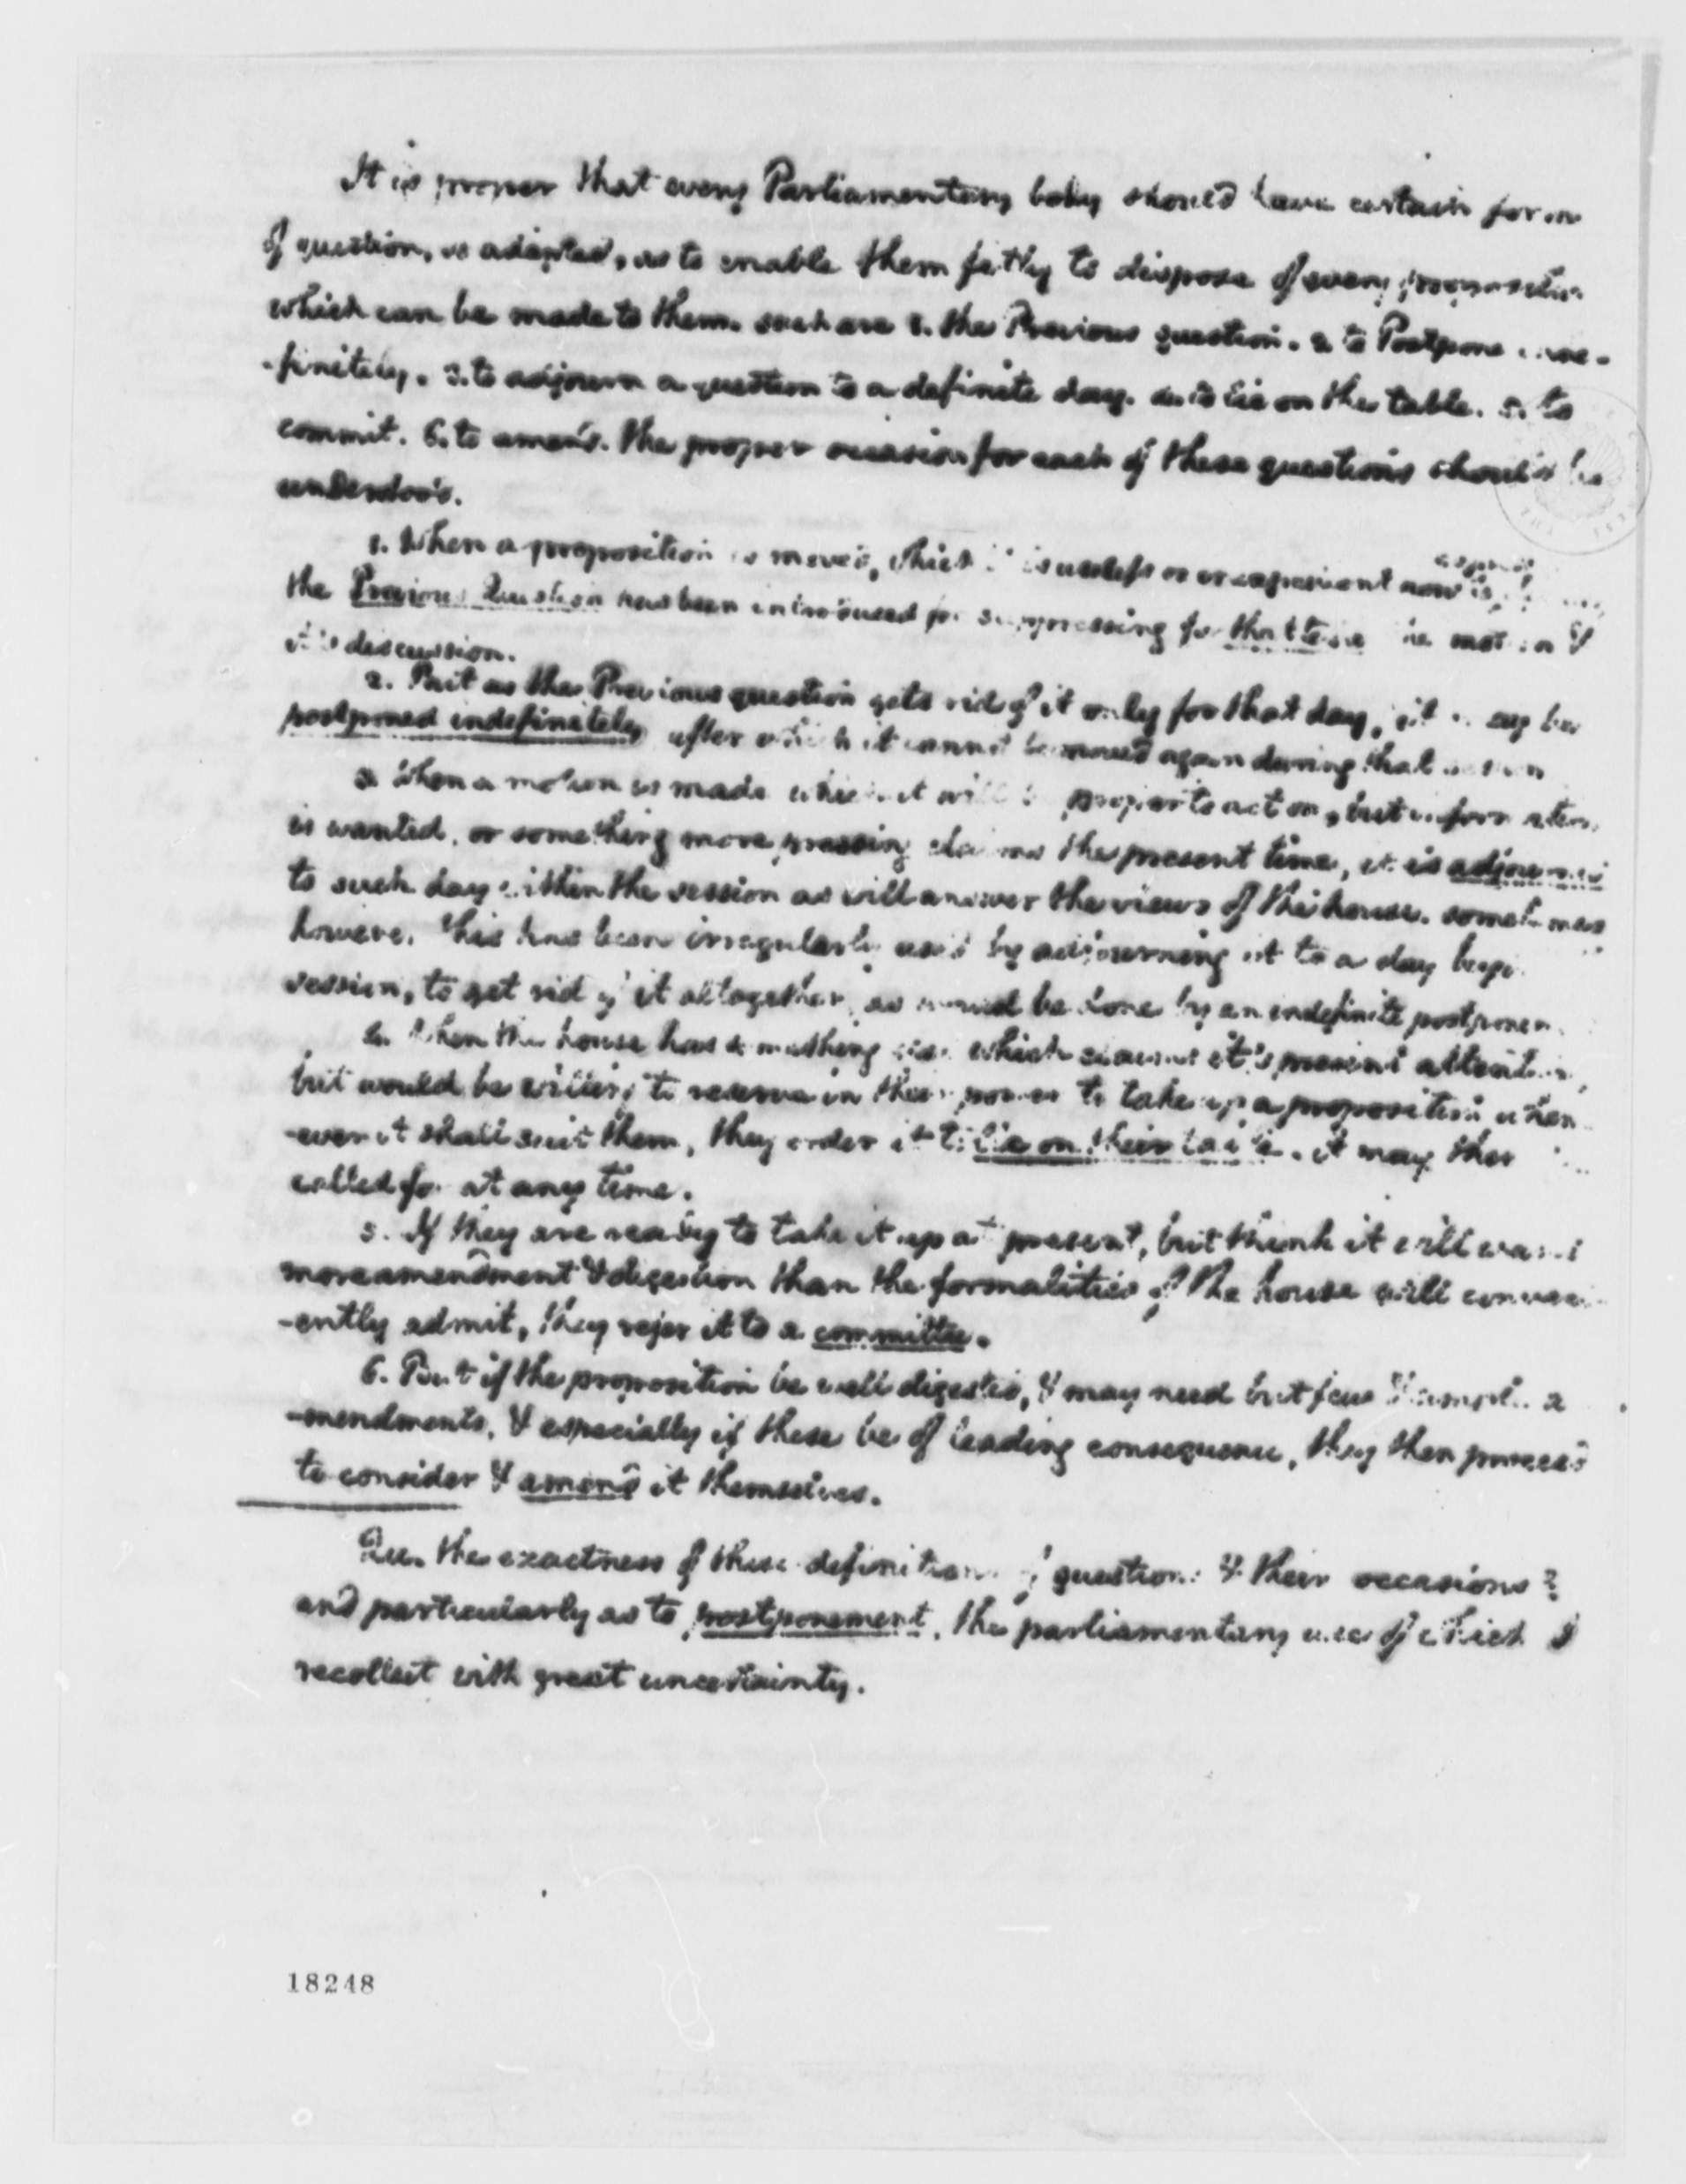 It is proper that every Parliamentary body should have certain form
of question, so adapted, as to enable them fitly to dispose of every proposition
which can be made to them. such are 1. the Previous question. 2. to Postpone inde-
-finitely. 3. to adjourn a question to a definite day. 4. to lie on the table. 5. to
commit. 6. to amend. the proper occasion for each of these questions should be
understood.
1. When a proposition is moved, which it is useless or inexpedient now to
the Previous Question has been introduced for suppressing for that time the motion &
it's discussion.
2. But as the Previous question gets rid of it only for that day, it may be
postponed indefinitely after which it cannot be moved again during that session
3. When a motion is made which it will be proper to act on, but information
is wanted, or something more pressing claims the present time, it is adjourned
to such day within the session as will answer the views of the house. sometimes
however this has been irregularly used by adjourning it to a day
session, to get rid of it altogether, as would be done by an indefinite postponem
4. When the house has something else which claims it's present attention,
but would be willing to reserve in their power to take up a proposition when
-ever it shall suit them, they order it to lie on their table. it may then
called for at any time.
5. If they are ready to take it up at present, but think it will want
more amendment & digestion than the formalities of the house will conveni
-ently admit, they refer it to a committee.
6. But if the proposition be well digested, & may need but few & simple a
-mendments, & especially if these be of leading consequence, they then proceed
to consider & amend it themselves.
Qu. the exactness of these definitions of questions & their occasions?
and particularly as to postponement, the parliamentary use of which I
recollect with great uncertainty.
18248